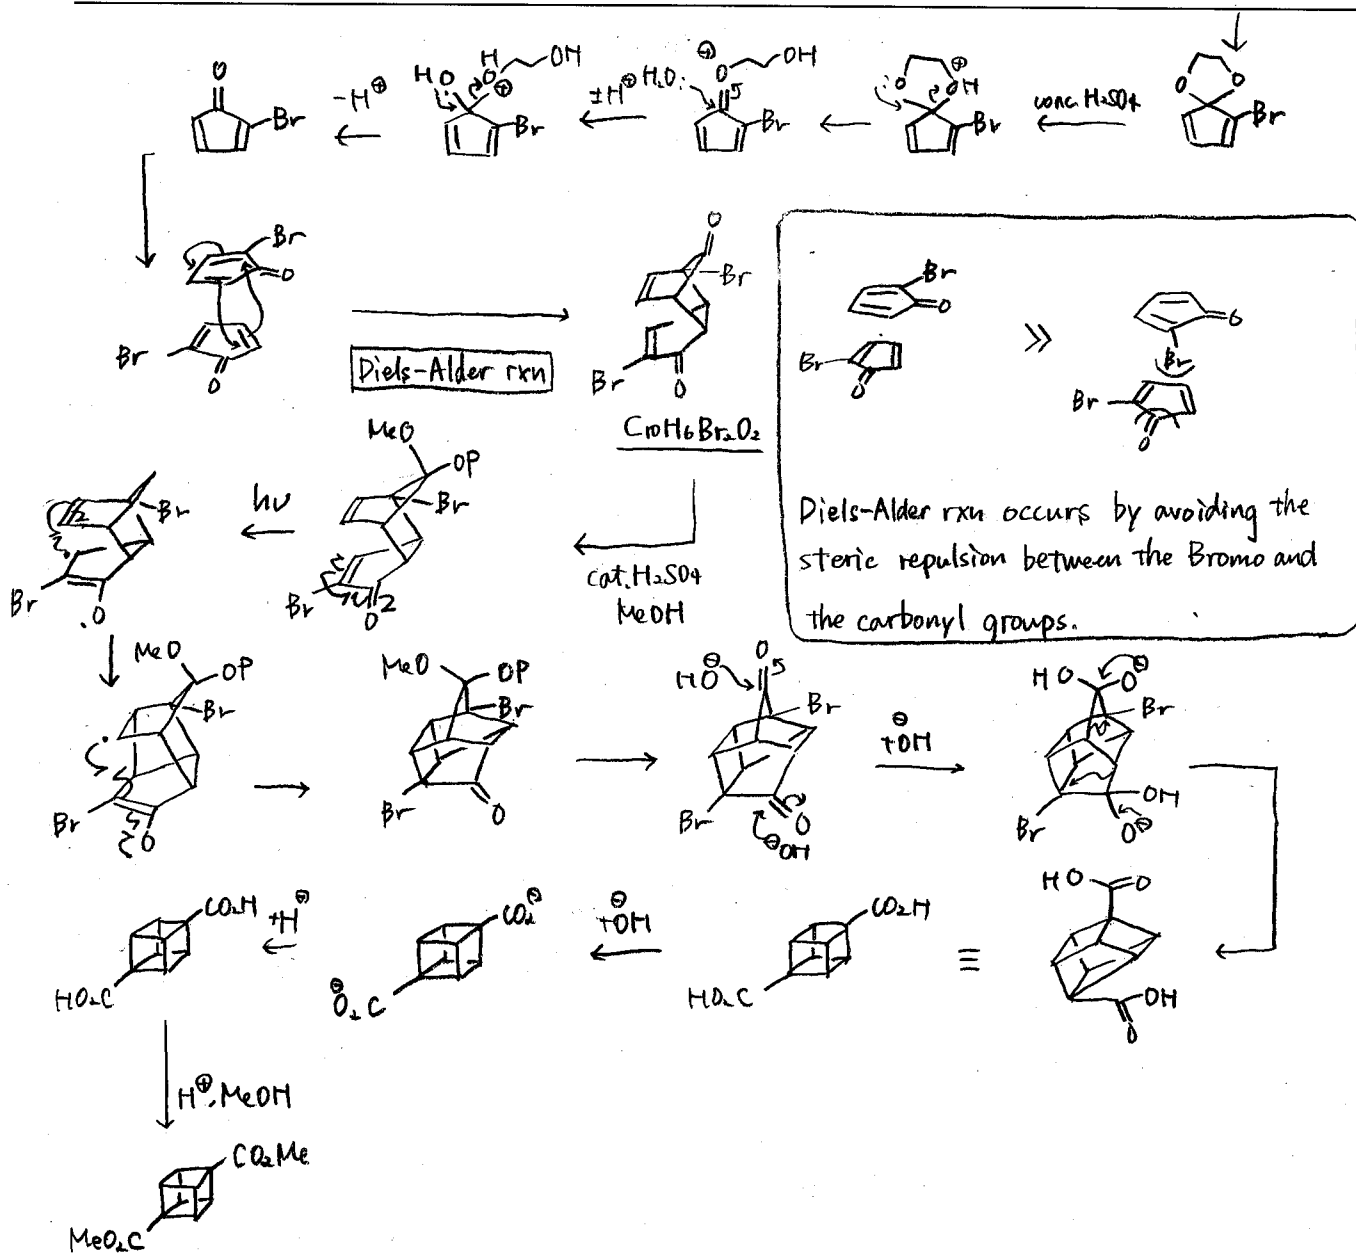 O
Br
-H⊕
H
HO
O
⊕
OH
Br
±H⊕
⊖
O
OH
H₂O:
Br
O
⊕
OH
Br
conc. H₂SO₄
O
O
Br
Br
O
Br
O
Diels-Alder rxn
O
Br
Br
O
C₁₀H₆Br₂O₂
Br
O
Br
O
≫
O
Br
Br
O
Diels-Alder rxn occurs by avoiding the
steric repulsion between the Bromo and
the carbonyl groups.
cat. H₂SO₄
MeOH
MeO
OP
Br
Br
O
hν
Br
Br
.O
MeO
OP
Br
Br
O
MeO
OP
Br
Br
O
O
HO⊖
Br
Br
O
⊖OH
+⊖OH
HO
O⊖
Br
Br
OH
O⊖
HO
O
OH
O
≡
CO₂H
HO₂C
+⊖OH
CO₂⊖
⊖O₂C
+H⊕
CO₂H
HO₂C
H⊕, MeOH
CO₂Me
MeO₂C